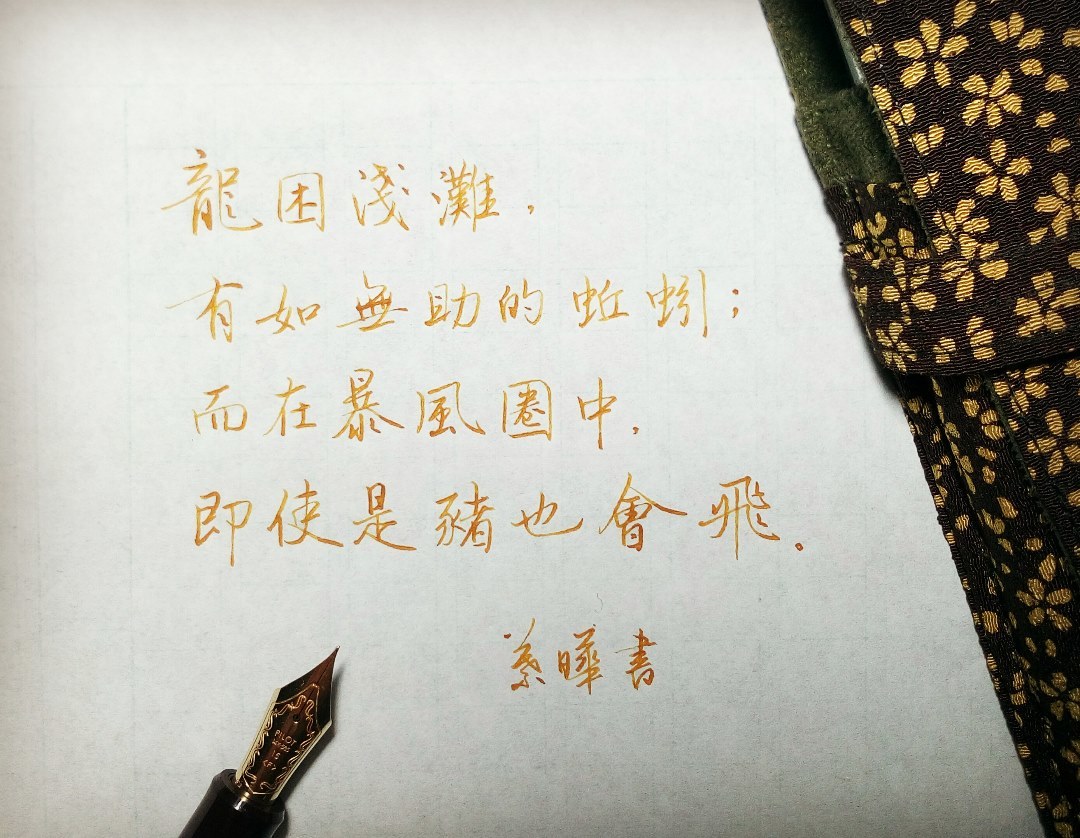 龍困淺灘，
有如無助的蚯蚓；
而在暴風圈中，
即使是豬也會飛。
蔡曄書
PILOT